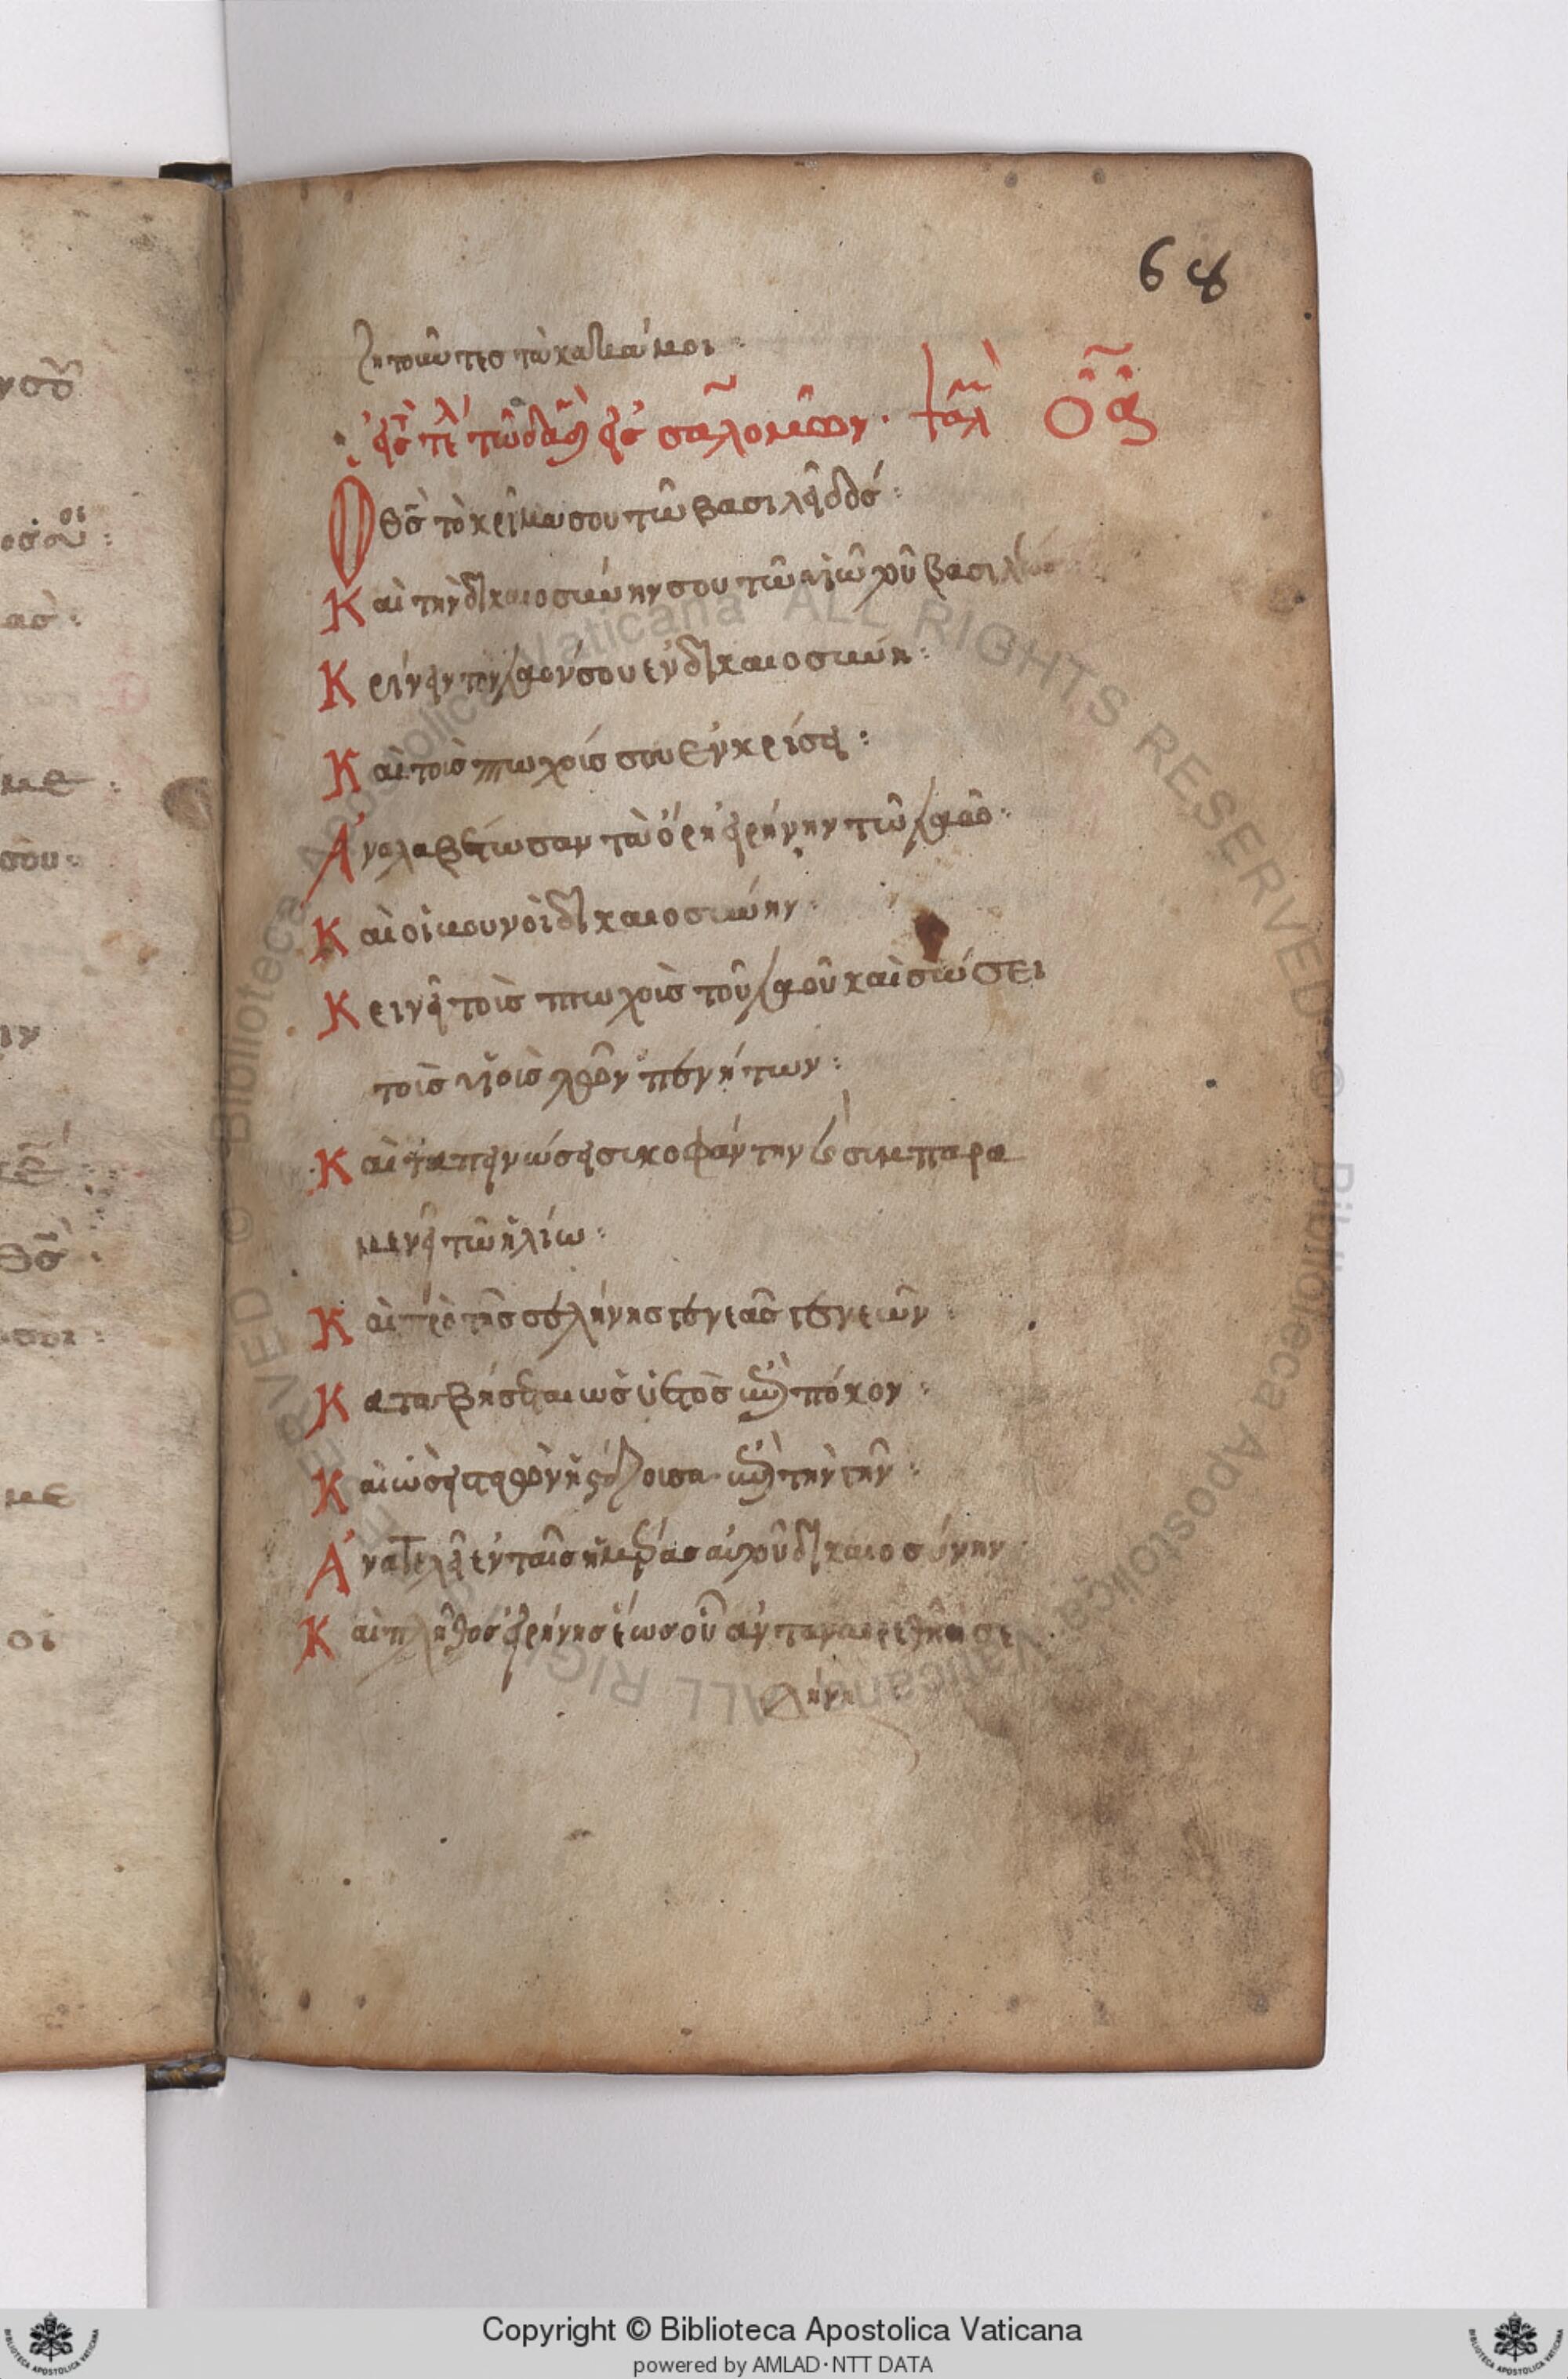 68
ζητοῦντες τὰ κακά μοι :
εἰς τ τελ τῶ δαδ εἰς σαλομών · ψαλ ο̅α̅
Ὁ θς τὸ κρῖμα σου τῶ βασιλεῖ δὸς :
Καὶ τὴν δικαιοσύνην σου τῶ υἱῶ τοῦ βασιλέως
Κρίνειν τὸν λαόν σου ἐν δικαιοσύνη :
Καὶ τοὶς πτωχοίς σου ἐν κρίσει :
Ἀναλαβέτωσαν τὰ ὄρη εἰρήνην τῶ λαῶ :
Καὶ οἱ βουνοὶ δικαιοσύνην :
Κρινεῖ τοὶς πτωχοὶς τοῦ λαοῦ καὶ σώσει
τοὶς υἱοὶς τῶν πενήτων :
Καὶ ταπεινώσει σικοφάντην καὶ σιμπαρα
μενεῖ τῶ ἡλίω :
Καὶ πρὸ τῆς σελήνης γενεὰς γενεῶν :
Καταβήσεται ὡς ὑετὸς ἐπὶ πόκον :
Καὶ ὡσεὶ σταγὼν ἡ στάζουσα ἐπὶ τὴν γῆν :
Ἀνατελεῖ ἐν ταῖς ἡμέραις αὐτοῦ δικαιοσύνην
Καὶ πλῆθος εἰρήνης ἕως οὗ ἀνταναιρεθῆ ἡ σε
λήνη
νσου
με
σου :
ιν
με
οι
Copyright © Biblioteca Apostolica Vaticana
powered by AMLAD·NTT DATA